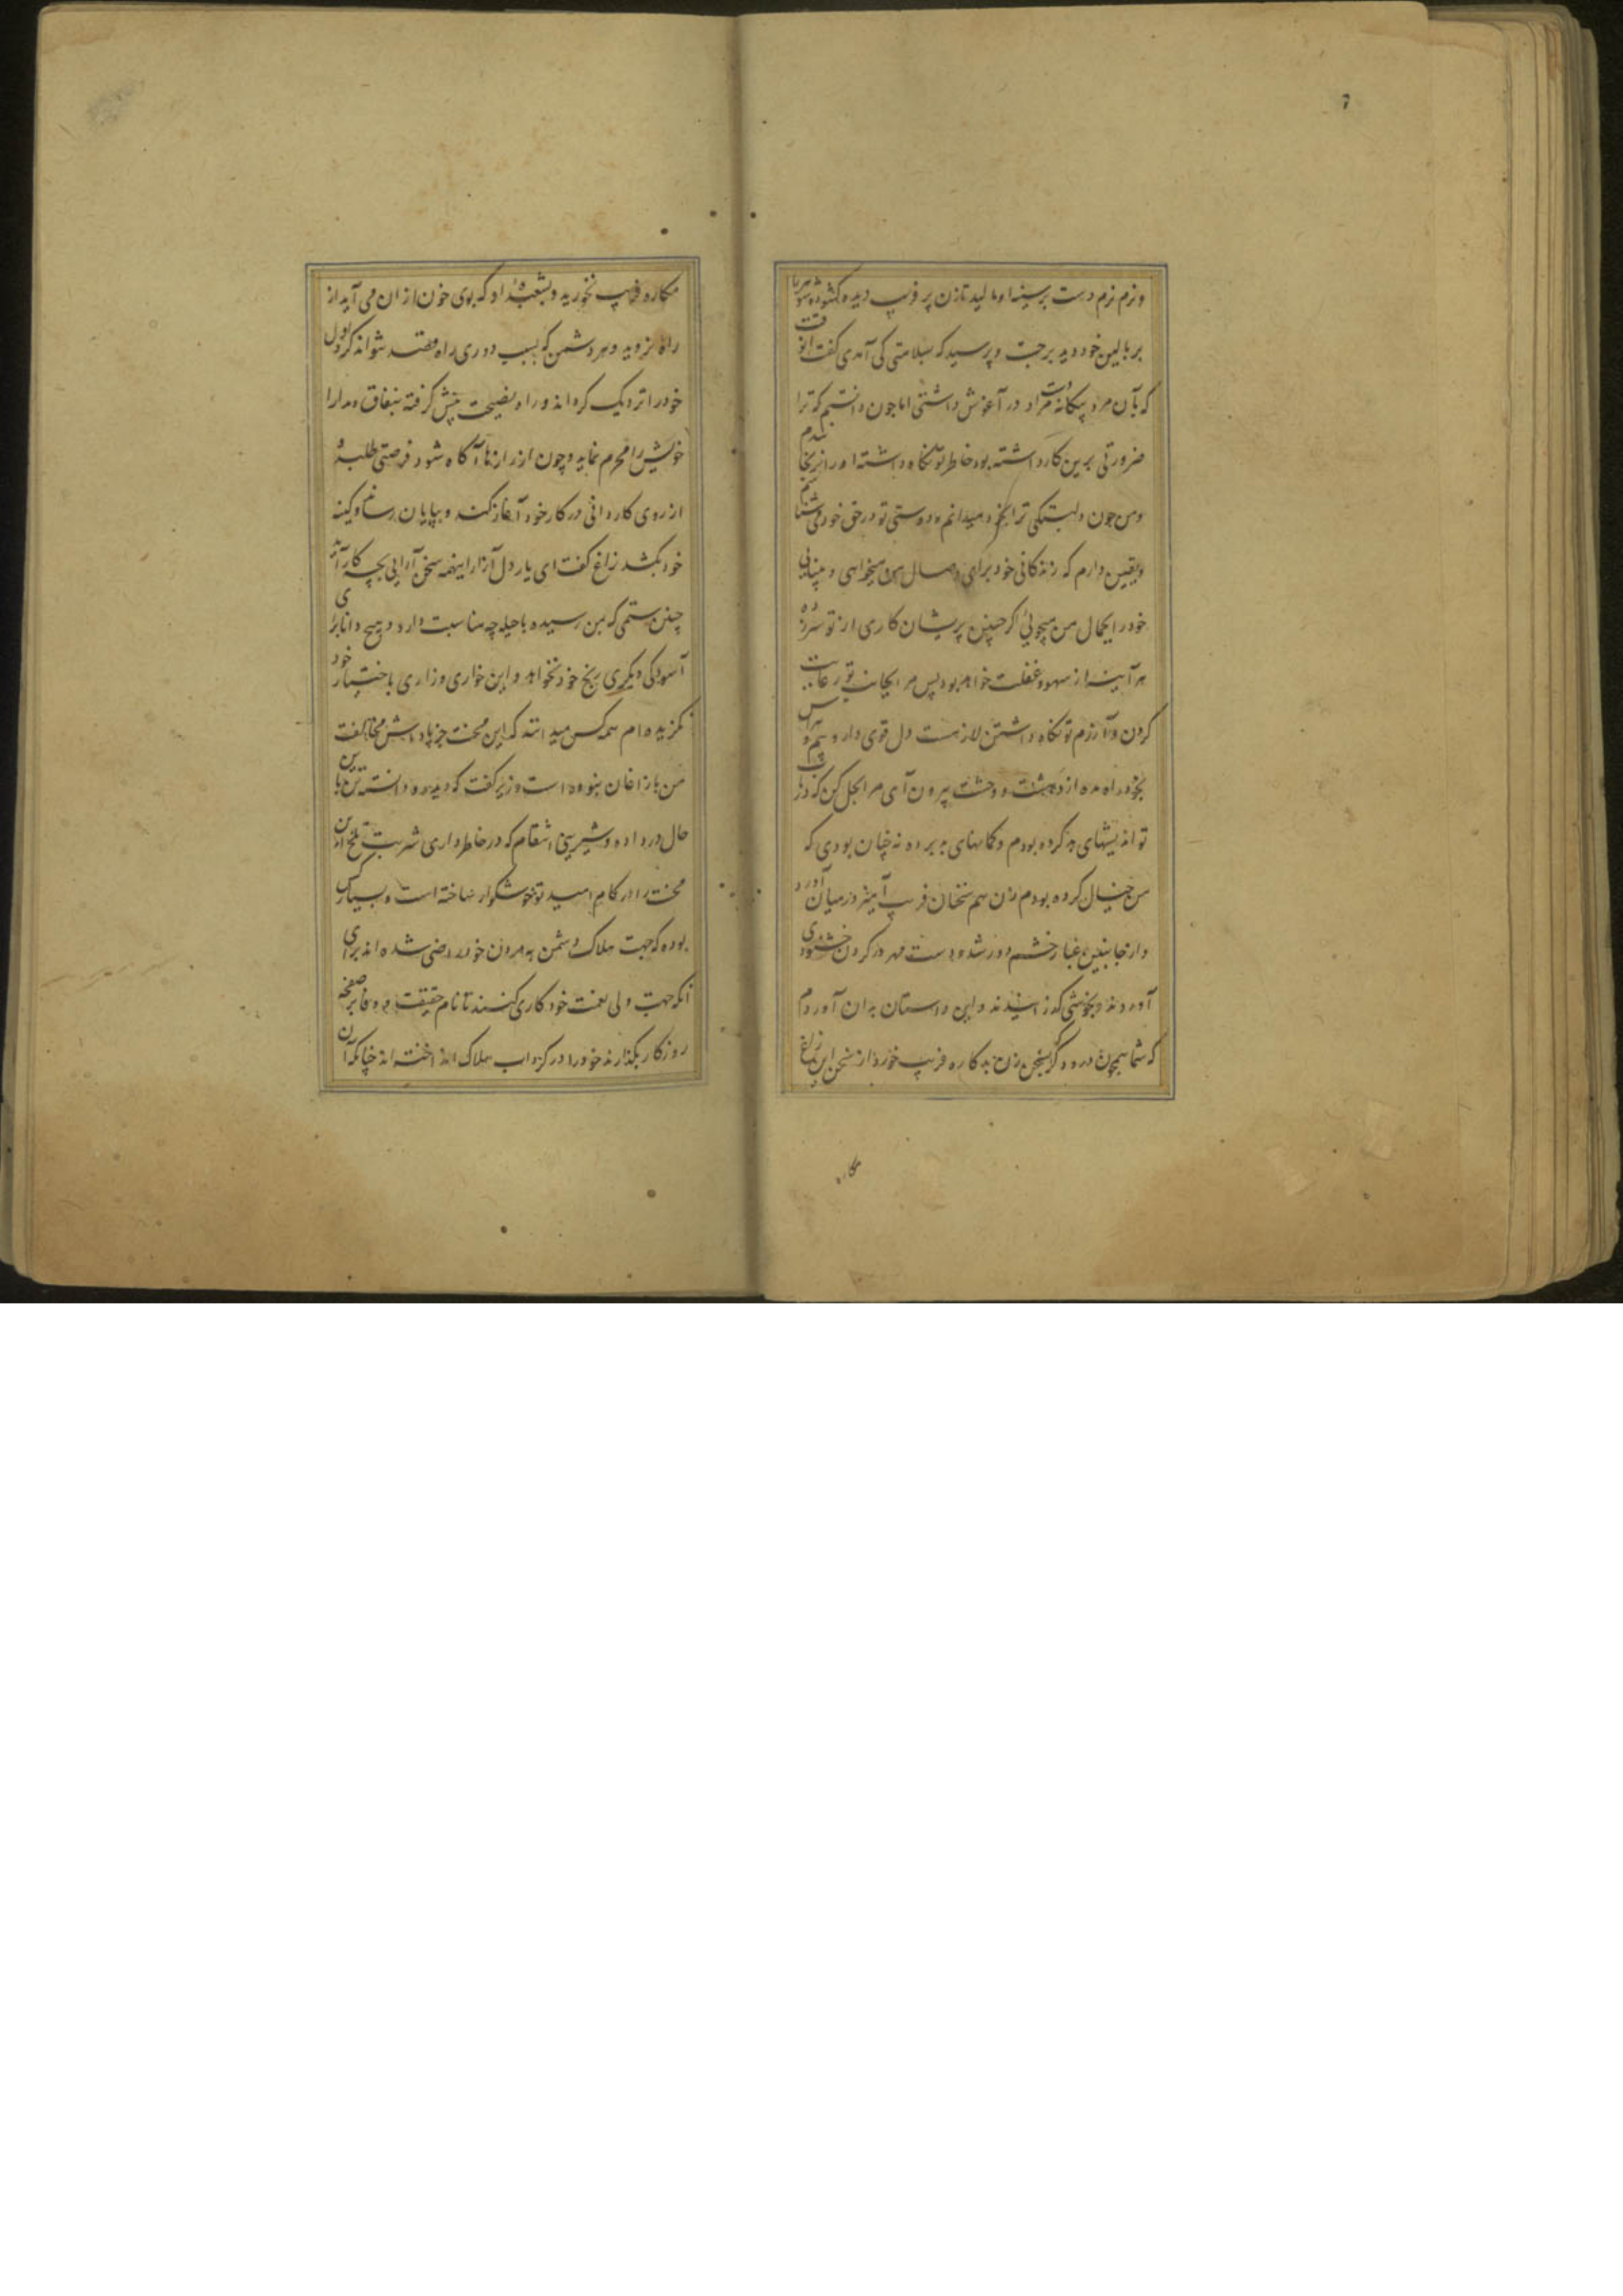 ونرم نرم دست بر سینه او مالید تا زن پر فریب دیده کشوده شوهر را
بر بالین خود دید برجست و پرسید که بسلامتی کی آمدی کفت انوقت
که با آن مرد بیکانه دست مراد در آغوش داشتی اما چون دانستم که ترا
ضرورتی برین کار داشته بود خاطر تو نکاه داشته او را نرنجانیدم
ومن چون دلبستکی ترا بخود میدانم و دوستی تو در حق خود می شناسم
ویقین دارم که زندکانی خود برای وصال من میخواهی و بینایی
خود را بجمال من میجوئی اکر چنین پریشان کاری از تو سر زده
هر آینه از سهو و غفلت خواهد بود پس مرا بجانب تو رعایت
کردن و آزرم تو نکاه داشتن لازمست دل قوی دار و بیم و هراس
بخود راه مده از دهشت و وحشت بیرون آی مرا بحل کن که در باب
تو اندیشهای بد کرده بودم و کمانهای بد برده نه چنان بودی که
من خیال کرده بودم زن هم سخنان فریب آمیز در میان آورد
و از جانبین غبار خشم دور شد و دست مهر در کردن خشنودی
آوردند و بخوشی کذرانیدند و این داستان بدان آوردم
که شما همچون درودکر بسخن زن بدکاره فریب خورد از سخن این زاغ
مکاره
مکاره فریب نخورید و بشعبده او که بوی خون از ان می آید از
راه نروید و هر دشمن که بسبب دوری راه قصد نتواند کرد اول
خود را نزدیک کرداند و راه نصیحت پیش کرفته بنفاق و مدارا
خویش را محرم نماید و چون از رازها آکاه شود فرصتی طلبد و
از روی کاردانی در کار خود آغاز کند و بپایان رساند و کینه
خود بکشد زاغ کفت ای یار دل آزار اینهمه سخن آرایی بچه کار آید
چنین ستمی که بمن رسیده با حیله چه مناسبت دارد و هیچ دانا برای
آسودکی دیکری رنج خود نخواهد و این خواری و زاری باختیار خود
نکزیده ام همه کس میدانند که این محنت جز پاداش مخالفت
من با زاغان نبوده است وزیر کفت که دیده و دانسته تن باین
حال درداده و شیرینی انتقام که در خاطر داری شربت تلخ این
محنت را در کام امید تو خوشکوار ساخته است و بسیار کس
بوده که جهت هلاک دشمن بمردن خود راضی شده اند برای
آنکه جهت ولی نعمت خود کاری کنند تا نام حقیقت و وفا بر صفحه
روزکار بکذارند خود را در کرداب هلاک انداخته اند چنانکه آن